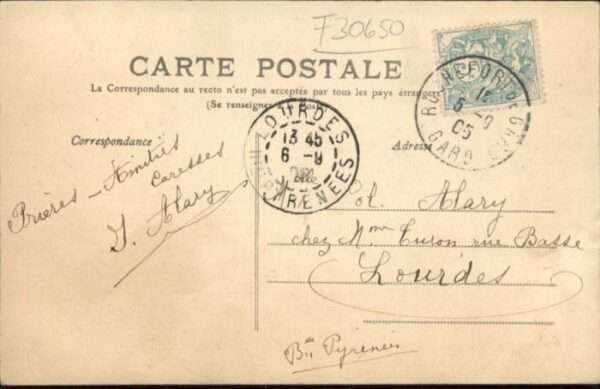 F30650
CARTE POSTALE
La Correspondance au recto n'est pas acceptée par tous les pays étrangers
(Se renseigner à la Poste)
Correspondance
Adresse
LOURDES
13 45
6 - 9
PYRENEES
ROCHEFORT
6 - 9
05
GARD
Prières - Amitiés
Caresses
J. Alary
Col. Alary
chez Mme Turon rue Basse
Lourdes
Bses Pyrénées